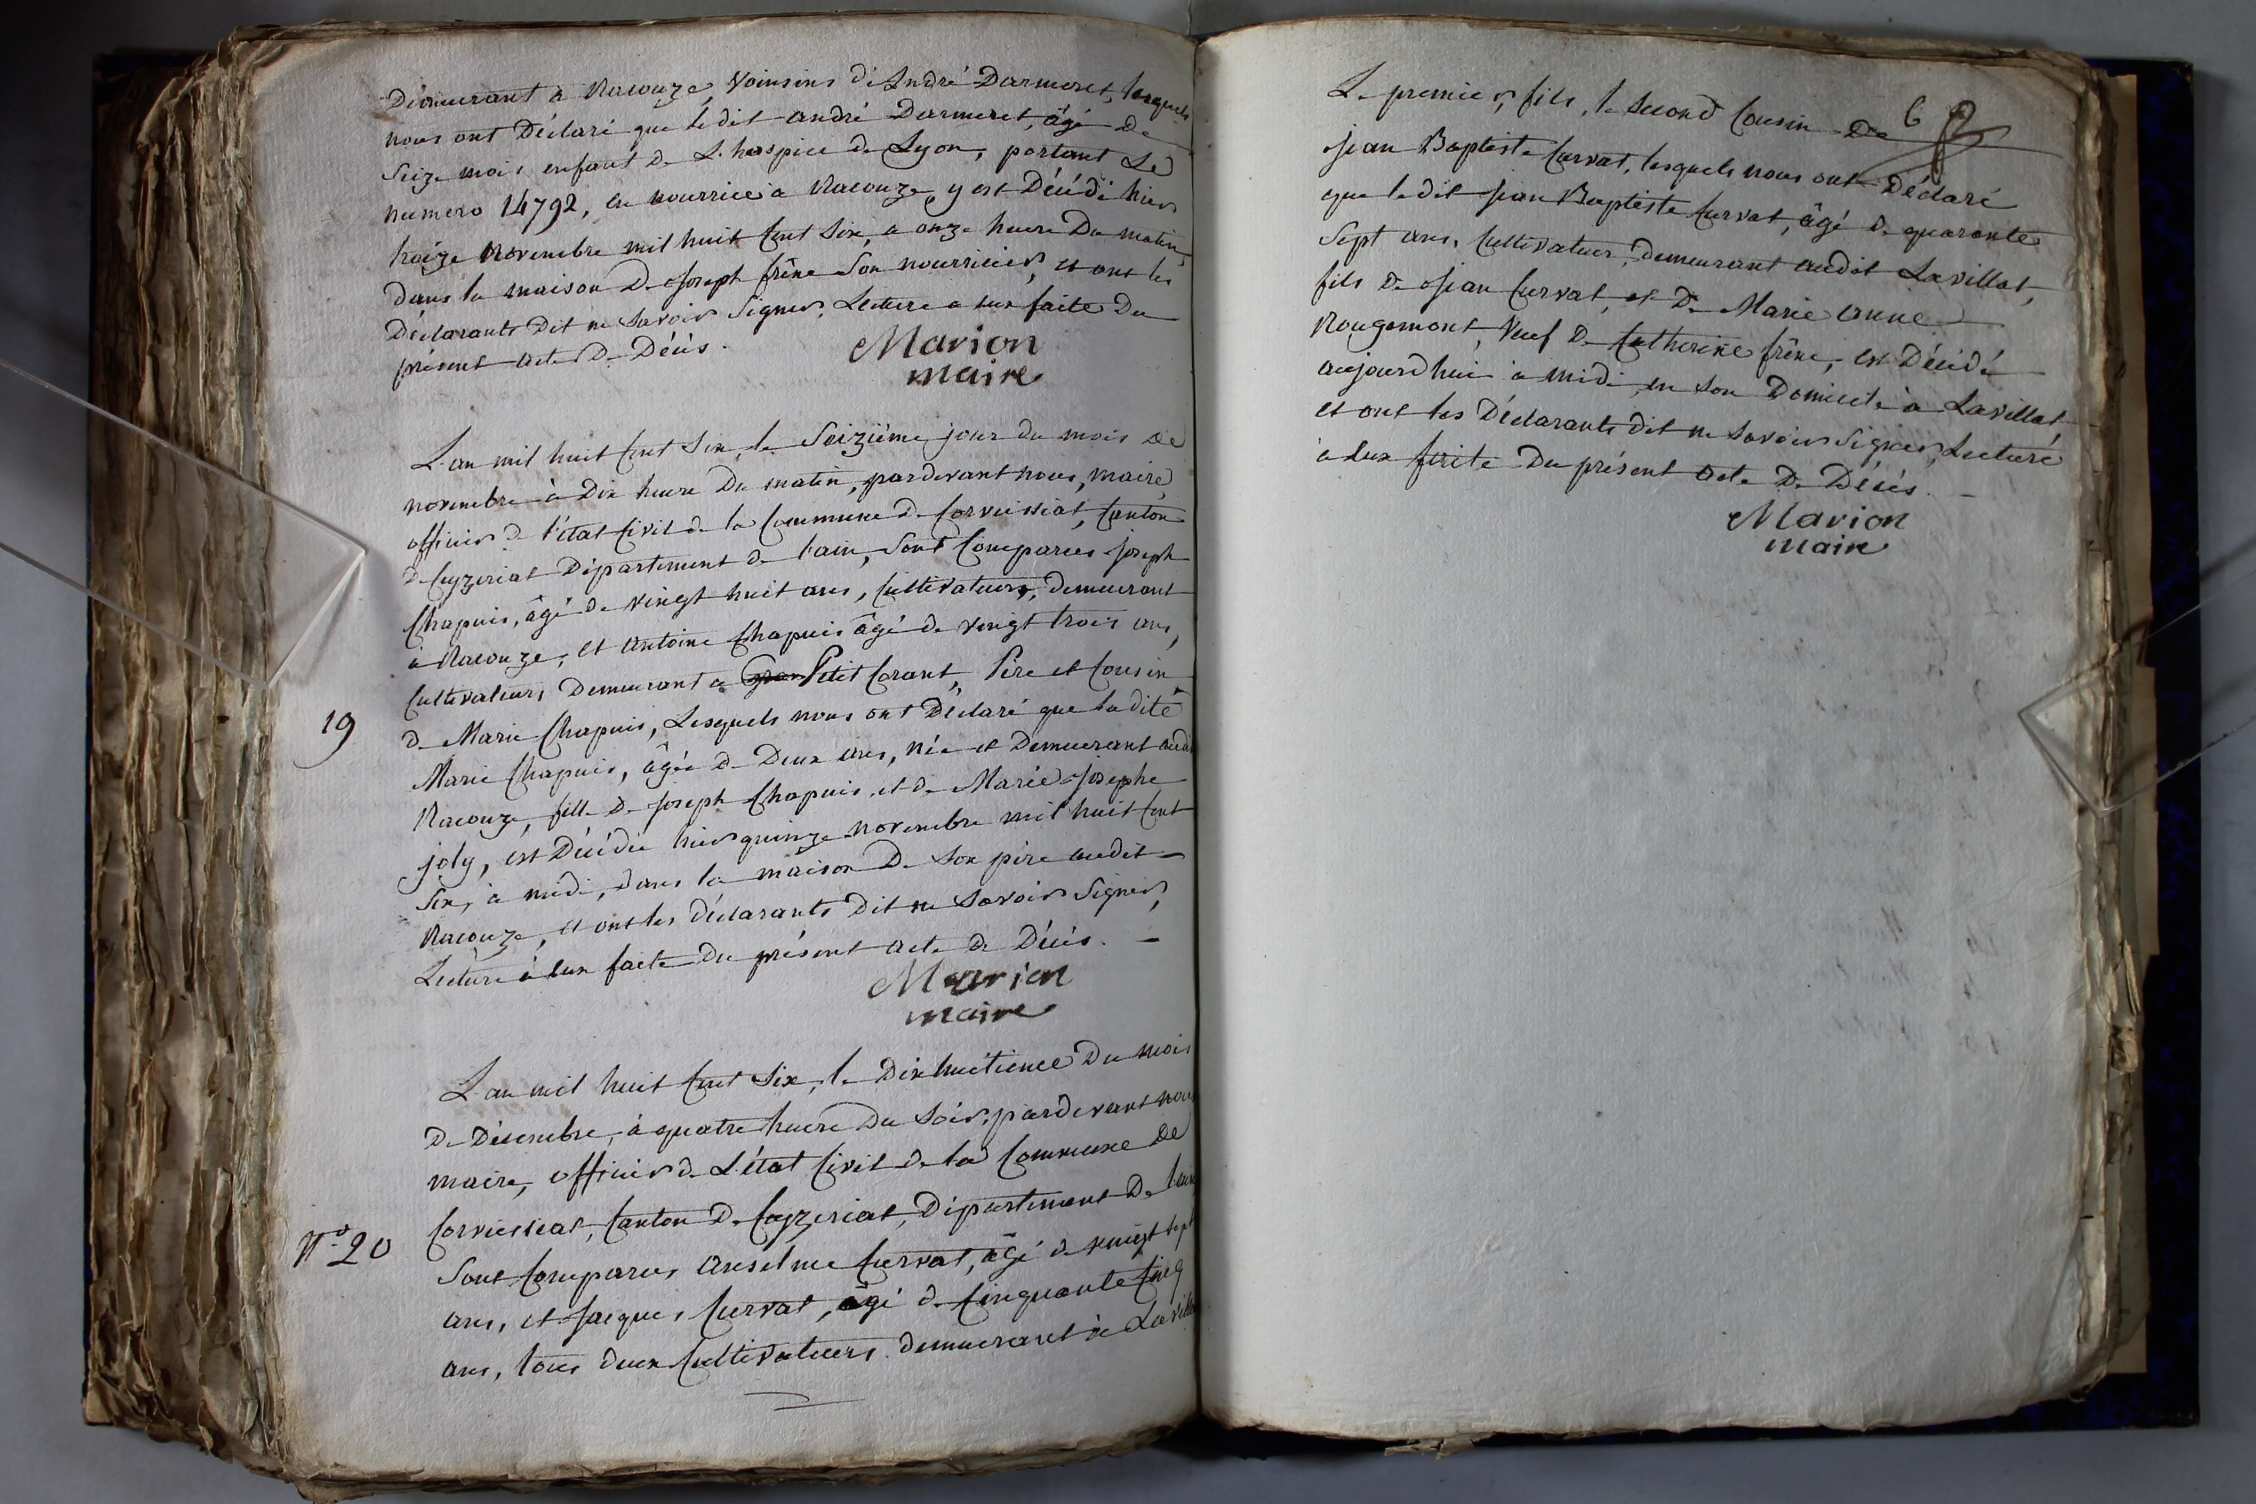 Demeurant a Racouze, Voinsins d'André Darmeret, lesquels
nous ont Déclaré que le dit andré Darmeret, âgé De
Seize mois enfant de L'hospice de Lyon, portant Le
numero 14792, en nourrice a Racouze, y est Décédé hier
treize novembre mil huit Cent Six, a onze heure Du matin,
dans la maison De Joseph frêne Son nourricier, et ont les
Déclarants Dit ne Savoir Signer, Lecture a eux faite Du
présent acte De Décès.
Marion
maire
L'an mil huit Cent Six, le Seizième jour du mois de
novembre à Dix heure Du matin, pardevant nous, maire
officier de l'état Civil de la Commune de Corveissiat, Canton
de Ceyzeriat Département de l'ain, Sont Comparus Joseph
Chapuis, âgé de vingt huit ans, Cultivateurs, demeurant
à Racouze, et antoine Chapuis âgé de vingt trois ans,
Cultivateurs Demeurant a Petit Corant, Père et Cousin
de Marie Chapuis, Lesquels nous ont Déclaré que la dite
19
Marie Chapuis, âgée de Deux ans, née et Demeurant audit
Racouze, fille de Joseph Chapuis et de Marie Josephe
joly, est Décédée hier quinze novembre mil huit Cent
Six, à midi, dans la maison De Son père audit
Racouze, et ont les déclarants Dit ne Savoir Signer,
Lecture à eux faite du présent acte de Décès.
Marion
maire
L'an mil huit Cent Six, le Dix huitieme Du mois
De Décembre, à quatre heure Du Soir, pardevant nous
maire, officier de L'état Civil de la Commune de
Corveissiat, Canton De Ceyzeriat, Département De l'ain
N° 20
Sont Comparus anselme Curvat, âgé de vingt sept
ans, et Jacques Curvat, âgé de Cinquante Cinq
ans, tous deux Cultivateurs demeurant à Lavillat
6
Le premier, fils, le Second Cousin De
Jean Baptiste Curvat, lesquels nous ont Déclaré
que le dit Jean Baptiste Curvat, âgé de quarante
Sept ans, Cultivateur, demeurant audit Lavillat,
fils de Jean Curvat, et De Marie anne
Rougemont, Veuf De Catherine frêne, est Décédé
aujourdhui à midi en Son Domicile à Lavillat
et ont les Déclarants dit ne Savoir Signer, Lecture
à eux faite Du présent acte De Décès.
Marion
maire